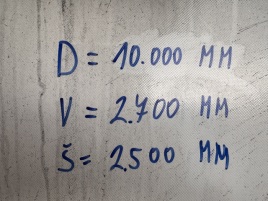 D = 10.000 MM
V = 2.700 MM
Š = 2.500 MM